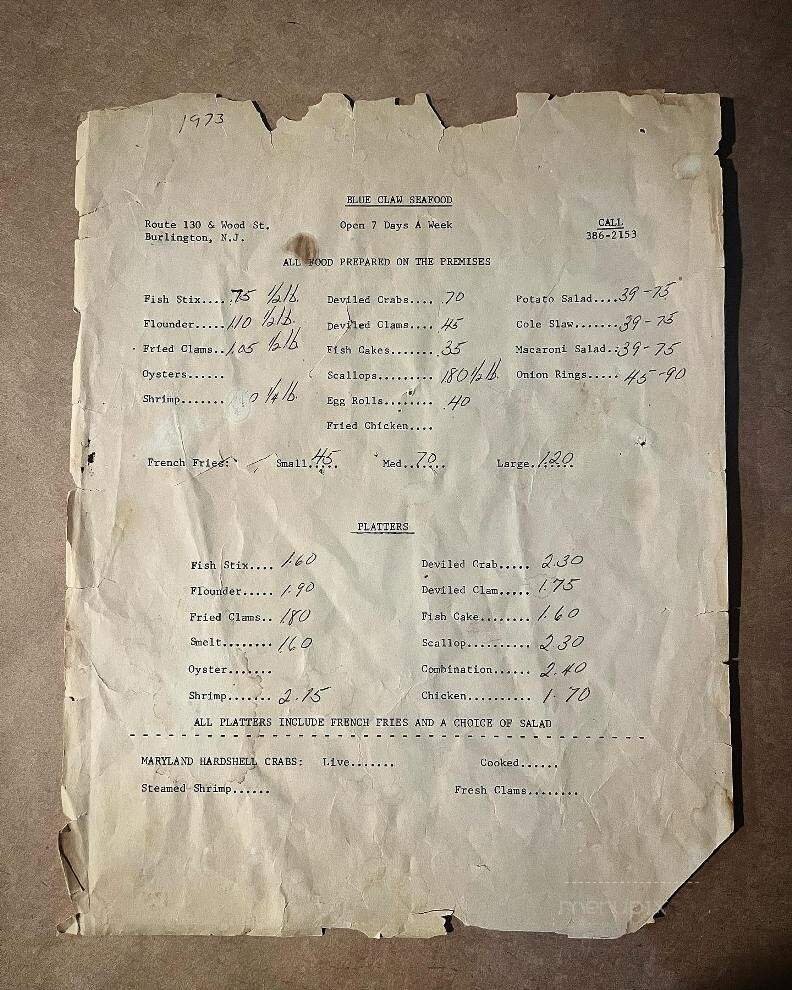 1973
BLUE CLAW SEAFOOD
Route 130 & Wood St. Open 7 Days A Week CALL
Burlington, N.J. 386-2153
ALL FOOD PREPARED ON THE PREMISES
Fish Stix.....75 1/2 lb. Deviled Crabs.... .70 Potato Salad....39-75
Flounder.....1.10 1/2 lb. Deviled Clams.... 45 Cole Slaw.......39-75
Fried Clams..1.05 1/2 lb. Fish Cakes....... 35 Macaroni Salad..39-75
Oysters...... Scallops......... 180 1/2 lb. Onion Rings..... 45-90
Shrimp....... 1/4 lb. Egg Rolls........ .40
Fried Chicken....
French Fries: Small.45.... Med..70.... Large.1.20.....
PLATTERS
Fish Stix.... 1.60 Deviled Crab..... 2.30
Flounder..... 1.90 Deviled Clam..... 1.75
Fried Clams.. 1.80 Fish Cake........ 1.60
Smelt........ 1.60 Scallop.......... 2.30
Oyster....... Combination...... 2.40
Shrimp....... 2.15 Chicken.......... 1.70
ALL PLATTERS INCLUDE FRENCH FRIES AND A CHOICE OF SALAD
MARYLAND HARDSHELL CRABS: Live....... Cooked......
Steamed Shrimp...... Fresh Clams........
menupix